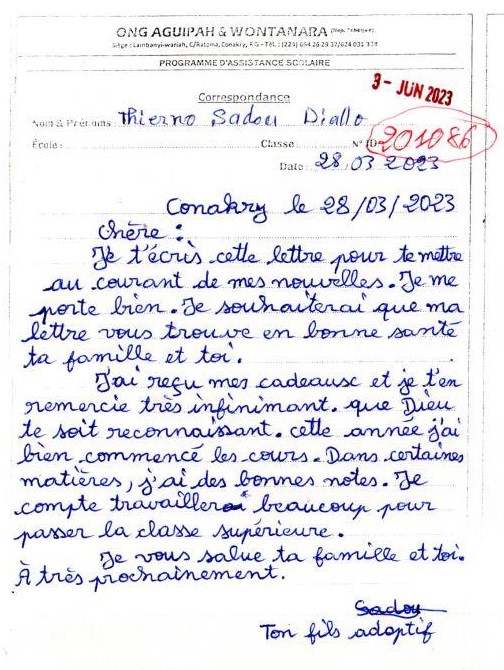 ONG AGUIPAH & WONTANARA (Rep. Tchèque)
Siège : Lambanyi-wariah, C/Ratoma, Conakry, RG - Tél. : (224) 654 26 29 37/624 031 338
PROGRAMME D'ASSISTANCE SCOLAIRE
9 - JUN 2023
Correspondance
Nom & Prénoms : Thierno Sadou Diallo
École : Classe N° ID 201086
Date : 28 03 2023
Conakry le 28/03/2023
Chère :
Je t'écris cette lettre pour te mettre
au courant de mes nouvelles. Je me
porte bien. Je souhaiterai que ma
lettre vous trouve en bonne santé
ta famille et toi.
J'ai reçu mes cadeause et je t'en
remercie très infinimant. que Dieu
te soit reconnaissant. cette année j'ai
bien commencé les cours. Dans certaines
matières, j'ai des bonnes notes. Je
compte travailler beaucoup pour
passer la classe supérieure.
Je vous salue ta famille et toi.
À très prochainement.
Sadou
Ton fils adoptif